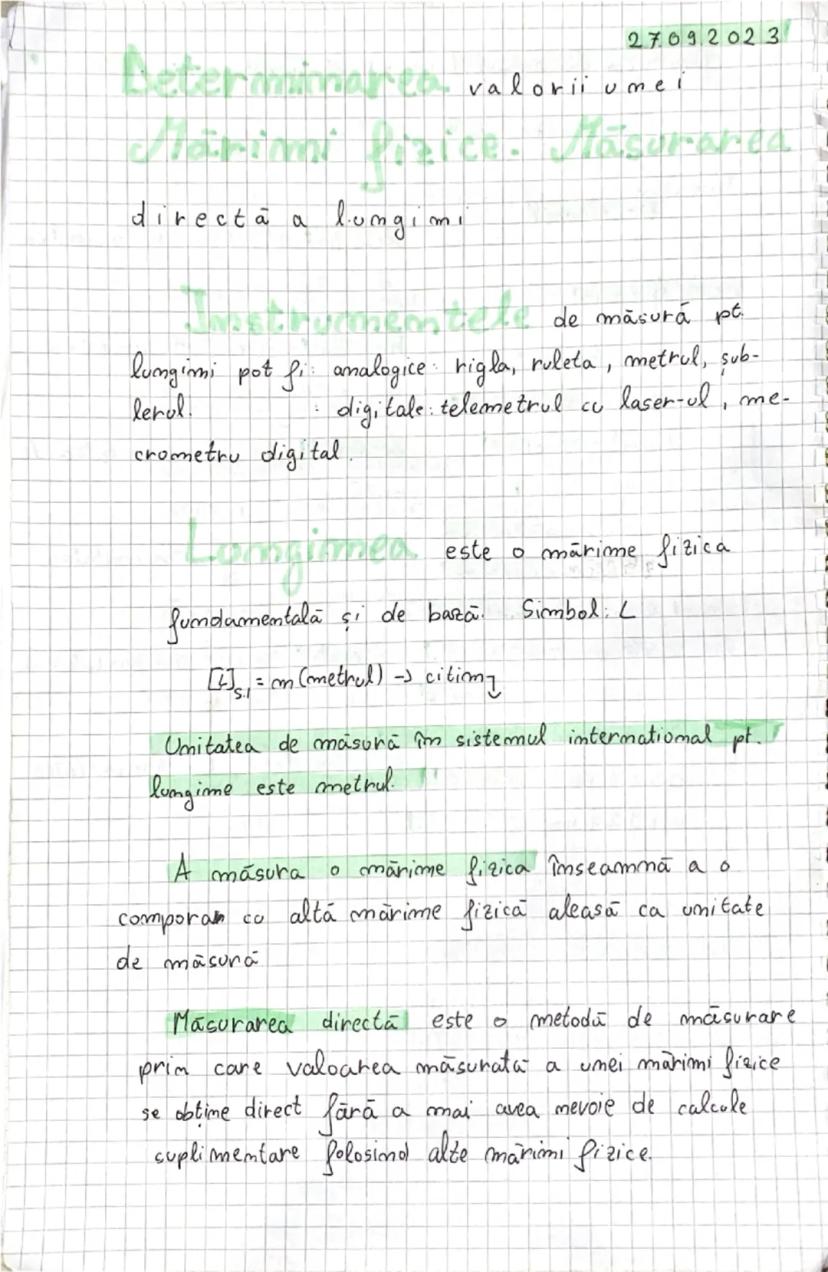 27.09.2023
Determinarea valorii unei
Mărimi fizice. Măsurarea
directă a lungimi
Instrumentele de măsură pt.
lungimi pot fi: analogice: rigla, ruleta, metrul, șub-
lerul. : digitale: telemetrul cu laser-ul, me-
crometru digital.
Lungimea este o mărime fizica
fundamentală și de bază. Simbol: L
[L]S.I = m (metrul) -> citim
Unitatea de măsură în sistemul international pt.
lungime este metrul.
A măsura o mărime fizica înseamnă a o
comporan cu altă mărime fizică aleasă ca unitate
de măsură
Măsurarea directă este o metodă de măsurare
prin care valoarea măsurată a unei mărimi fizice
se obține direct fără a mai avea nevoie de calcule
suplimentare folosind alte mărimi fizice.